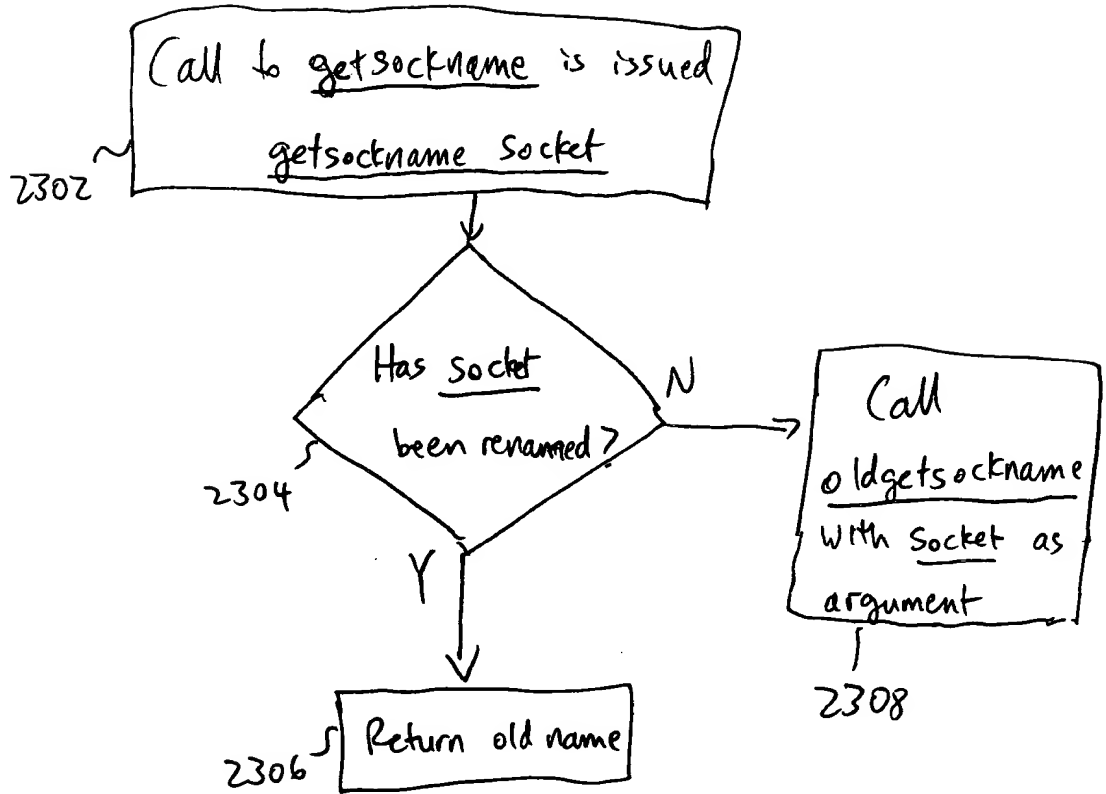 Call to getsockname is issued
getsockname socket
2302
Has socket
been renamed?
N
2304
Y
Call
oldgetsockname
with socket as
argument
2308
Return old name
2306